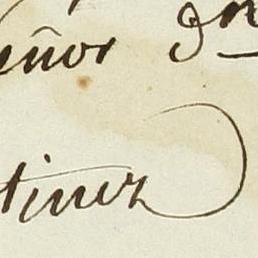 eñor Dn
tinez